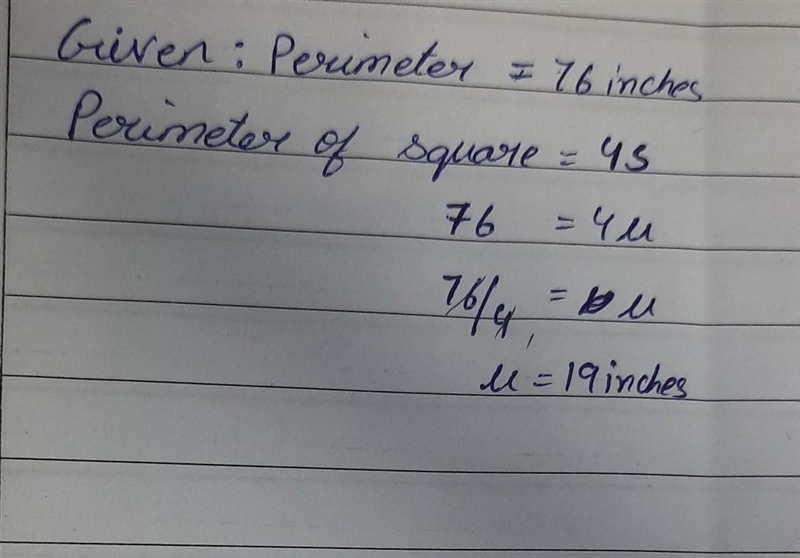 Given: Perimeter = 76 inches
Perimeter of square = 4s
76 = 4u
76/4 = u
u = 19 inches